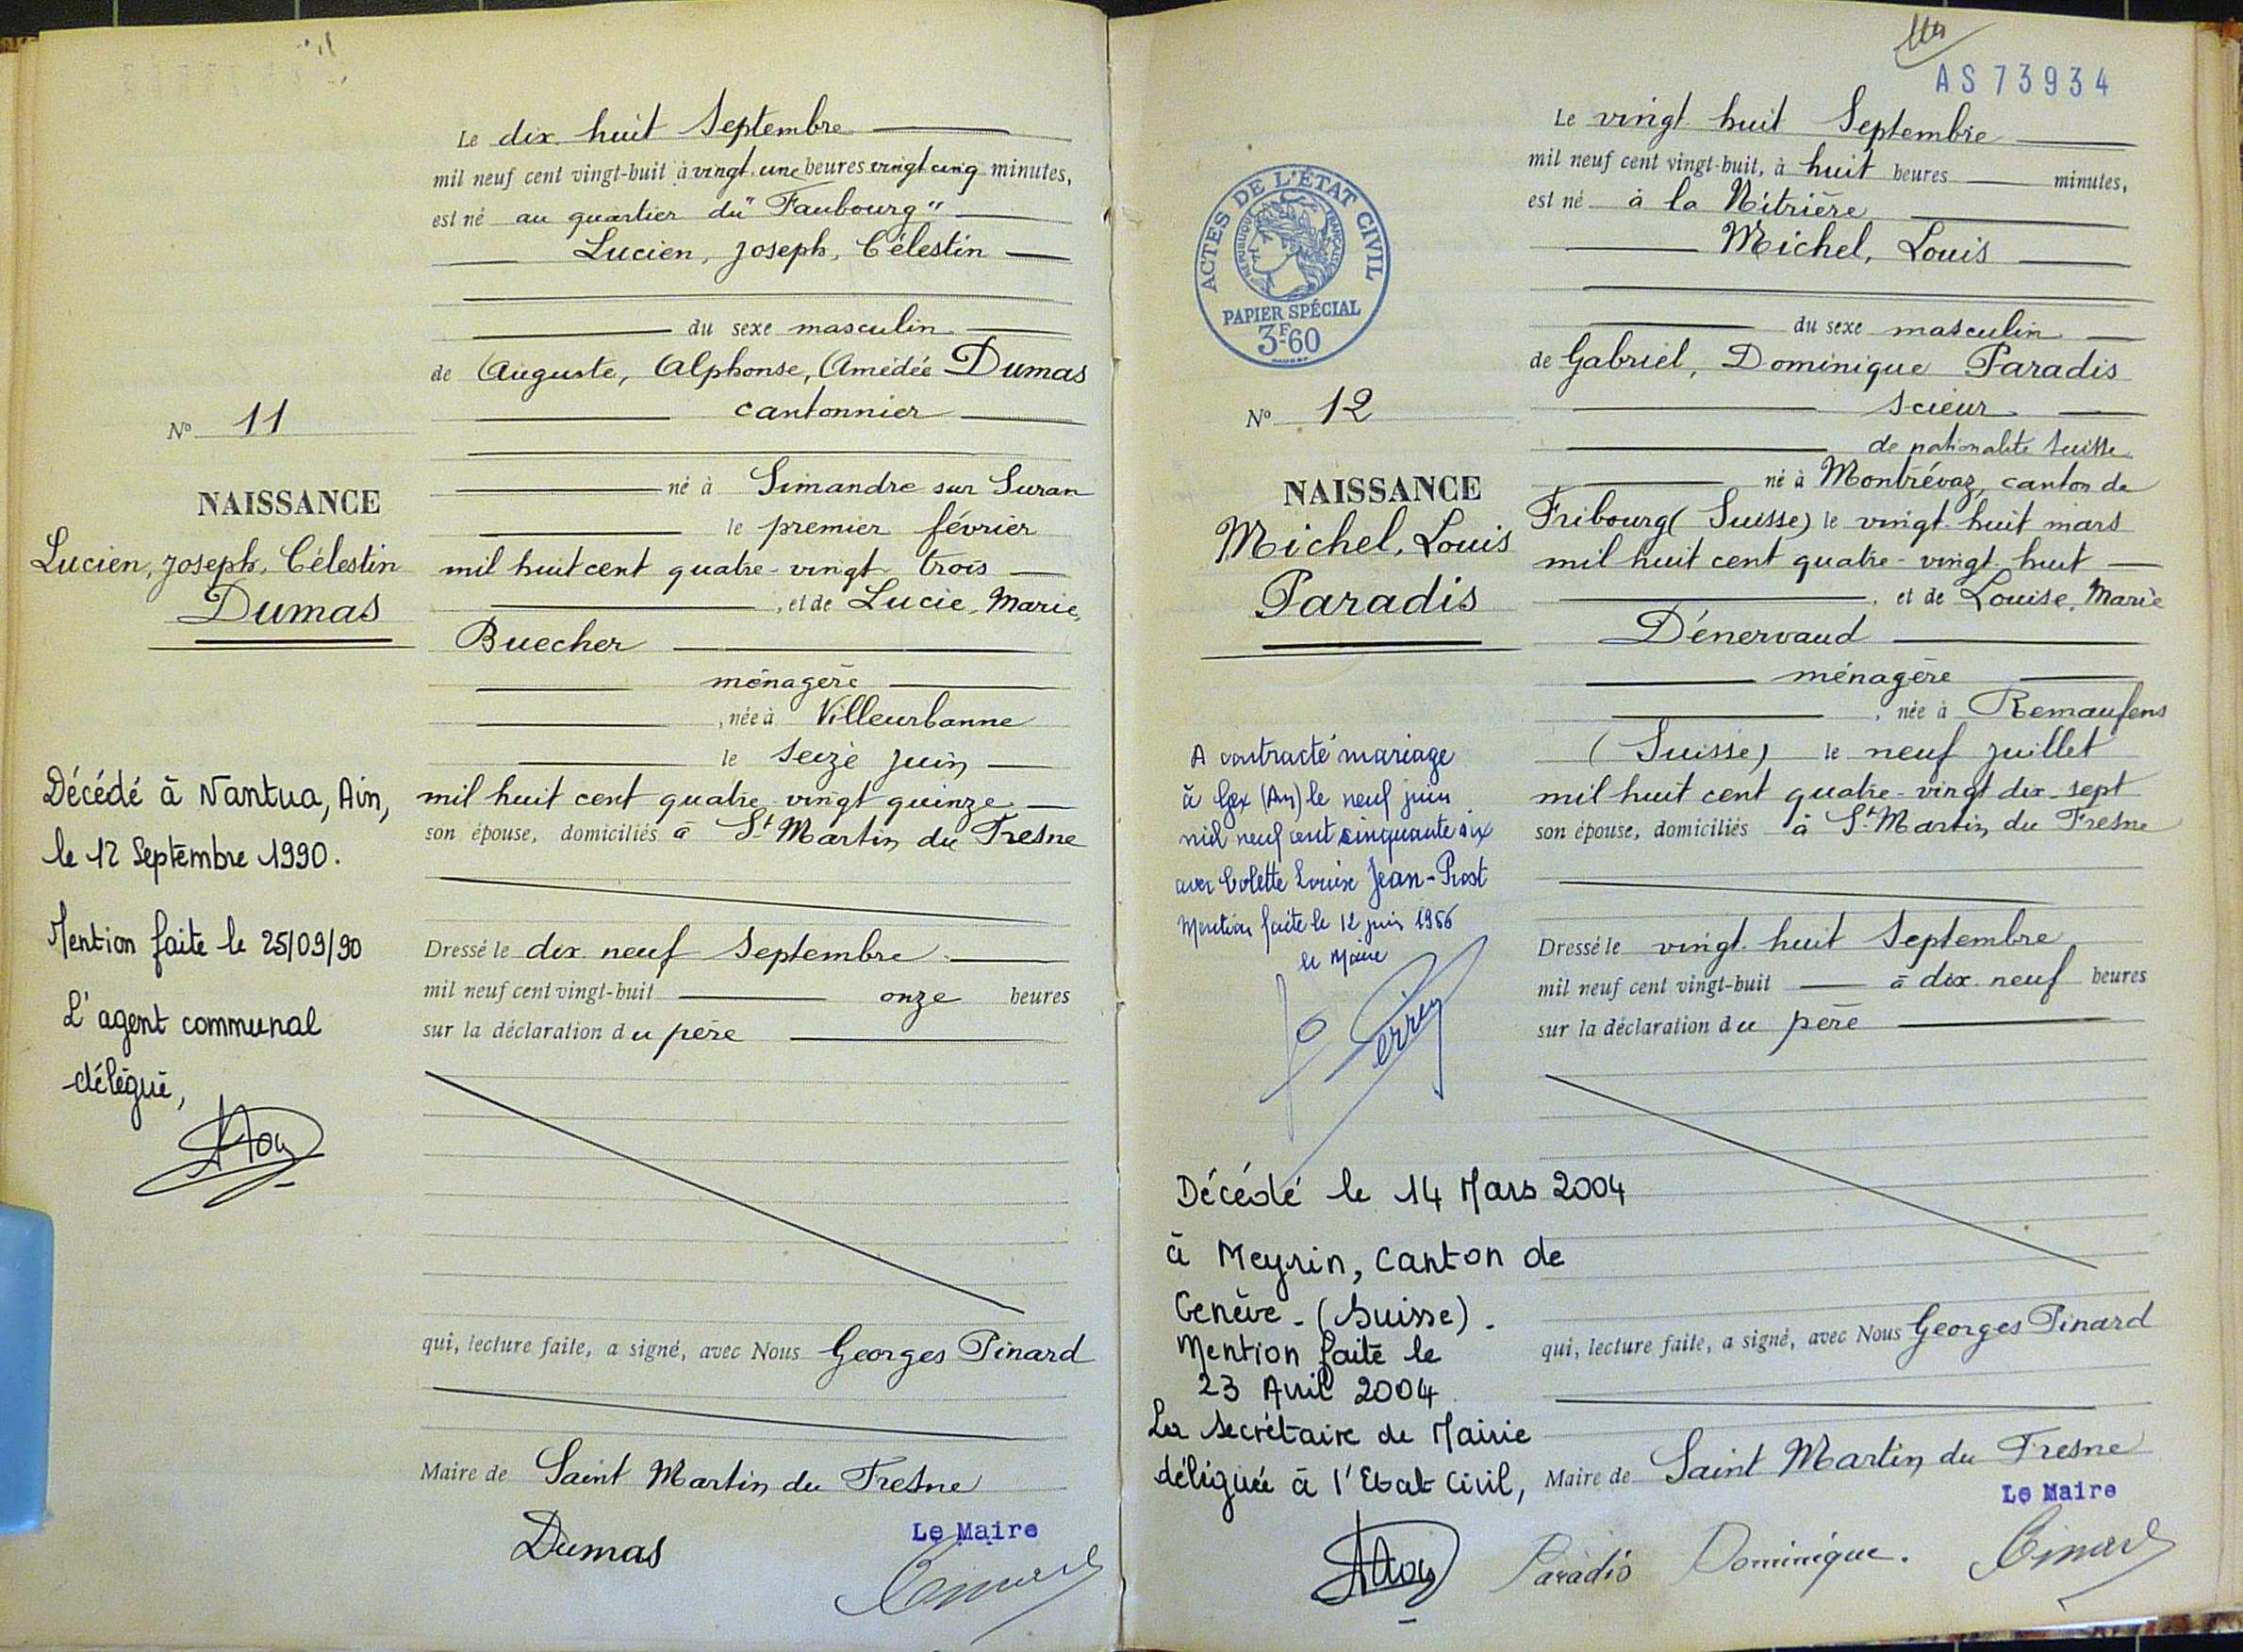 Le dix huit Septembre
mil neuf cent vingt-huit à vingt une heures vingt cinq minutes,
est né au quartier du "Faubourg"
Lucien, Joseph, Célestin
du sexe masculin
de Auguste, Alphonse, Amédée Dumas
cantonnier
né à Simandre sur Suran
le premier février
mil huit cent quatre-vingt trois
, et de Lucie, Marie,
Buecher
ménagère
, née à Villeurbanne
le seize juin
mil huit cent quatre-vingt quinze
son épouse, domiciliés à St Martin du Fresne
Dressé le dix neuf Septembre
mil neuf cent vingt-huit onze heures
sur la déclaration du père
qui, lecture faite, a signé, avec Nous Georges Pinard
Maire de Saint Martin du Fresne
Le Maire
Dumas
No 11
NAISSANCE
Lucien, Joseph, Célestin
Dumas
Décédé à Nantua, Ain,
le 12 Septembre 1990.
Mention faite le 25/09/90
L'agent communal
délégué,
AS 73934
Le vingt huit Septembre
mil neuf cent vingt-huit, à huit heures minutes,
est né à la Nitrière
Michel, Louis
du sexe masculin
de Gabriel, Dominique Paradis
scieur
de nationalité suisse
né à Montrévaz, canton de
Fribourg (Suisse) le vingt-huit mars
mil huit cent quatre-vingt huit
, et de Louise, Marie
Dénervaud
ménagère
, née à Remaufens
(Suisse) le neuf juillet
mil huit cent quatre-vingt dix-sept
son épouse, domiciliés à St Martin du Fresne
Dressé le vingt huit Septembre
mil neuf cent vingt-huit à dix neuf heures
sur la déclaration du père
qui, lecture faite, a signé, avec Nous Georges Pinard
Maire de Saint Martin du Fresne
Le Maire
Paradis Dominique.
ACTES DE L'ÉTAT CIVIL
RÉPUBLIQUE FRANÇAISE
PAPIER SPÉCIAL
3F60
No 12
NAISSANCE
Michel, Louis
Paradis
A contracté mariage
à Gex (Ain) le neuf juin
mil neuf cent cinquante six
avec Colette Louise Jean-Prost
Mention faite le 12 juin 1956
le Maire
Décédé le 14 Mars 2004
à Meyrin, Canton de
Genève - (Suisse).
Mention faite le
23 Avril 2004
La secrétaire de Mairie
déléguée à l'Etat Civil,